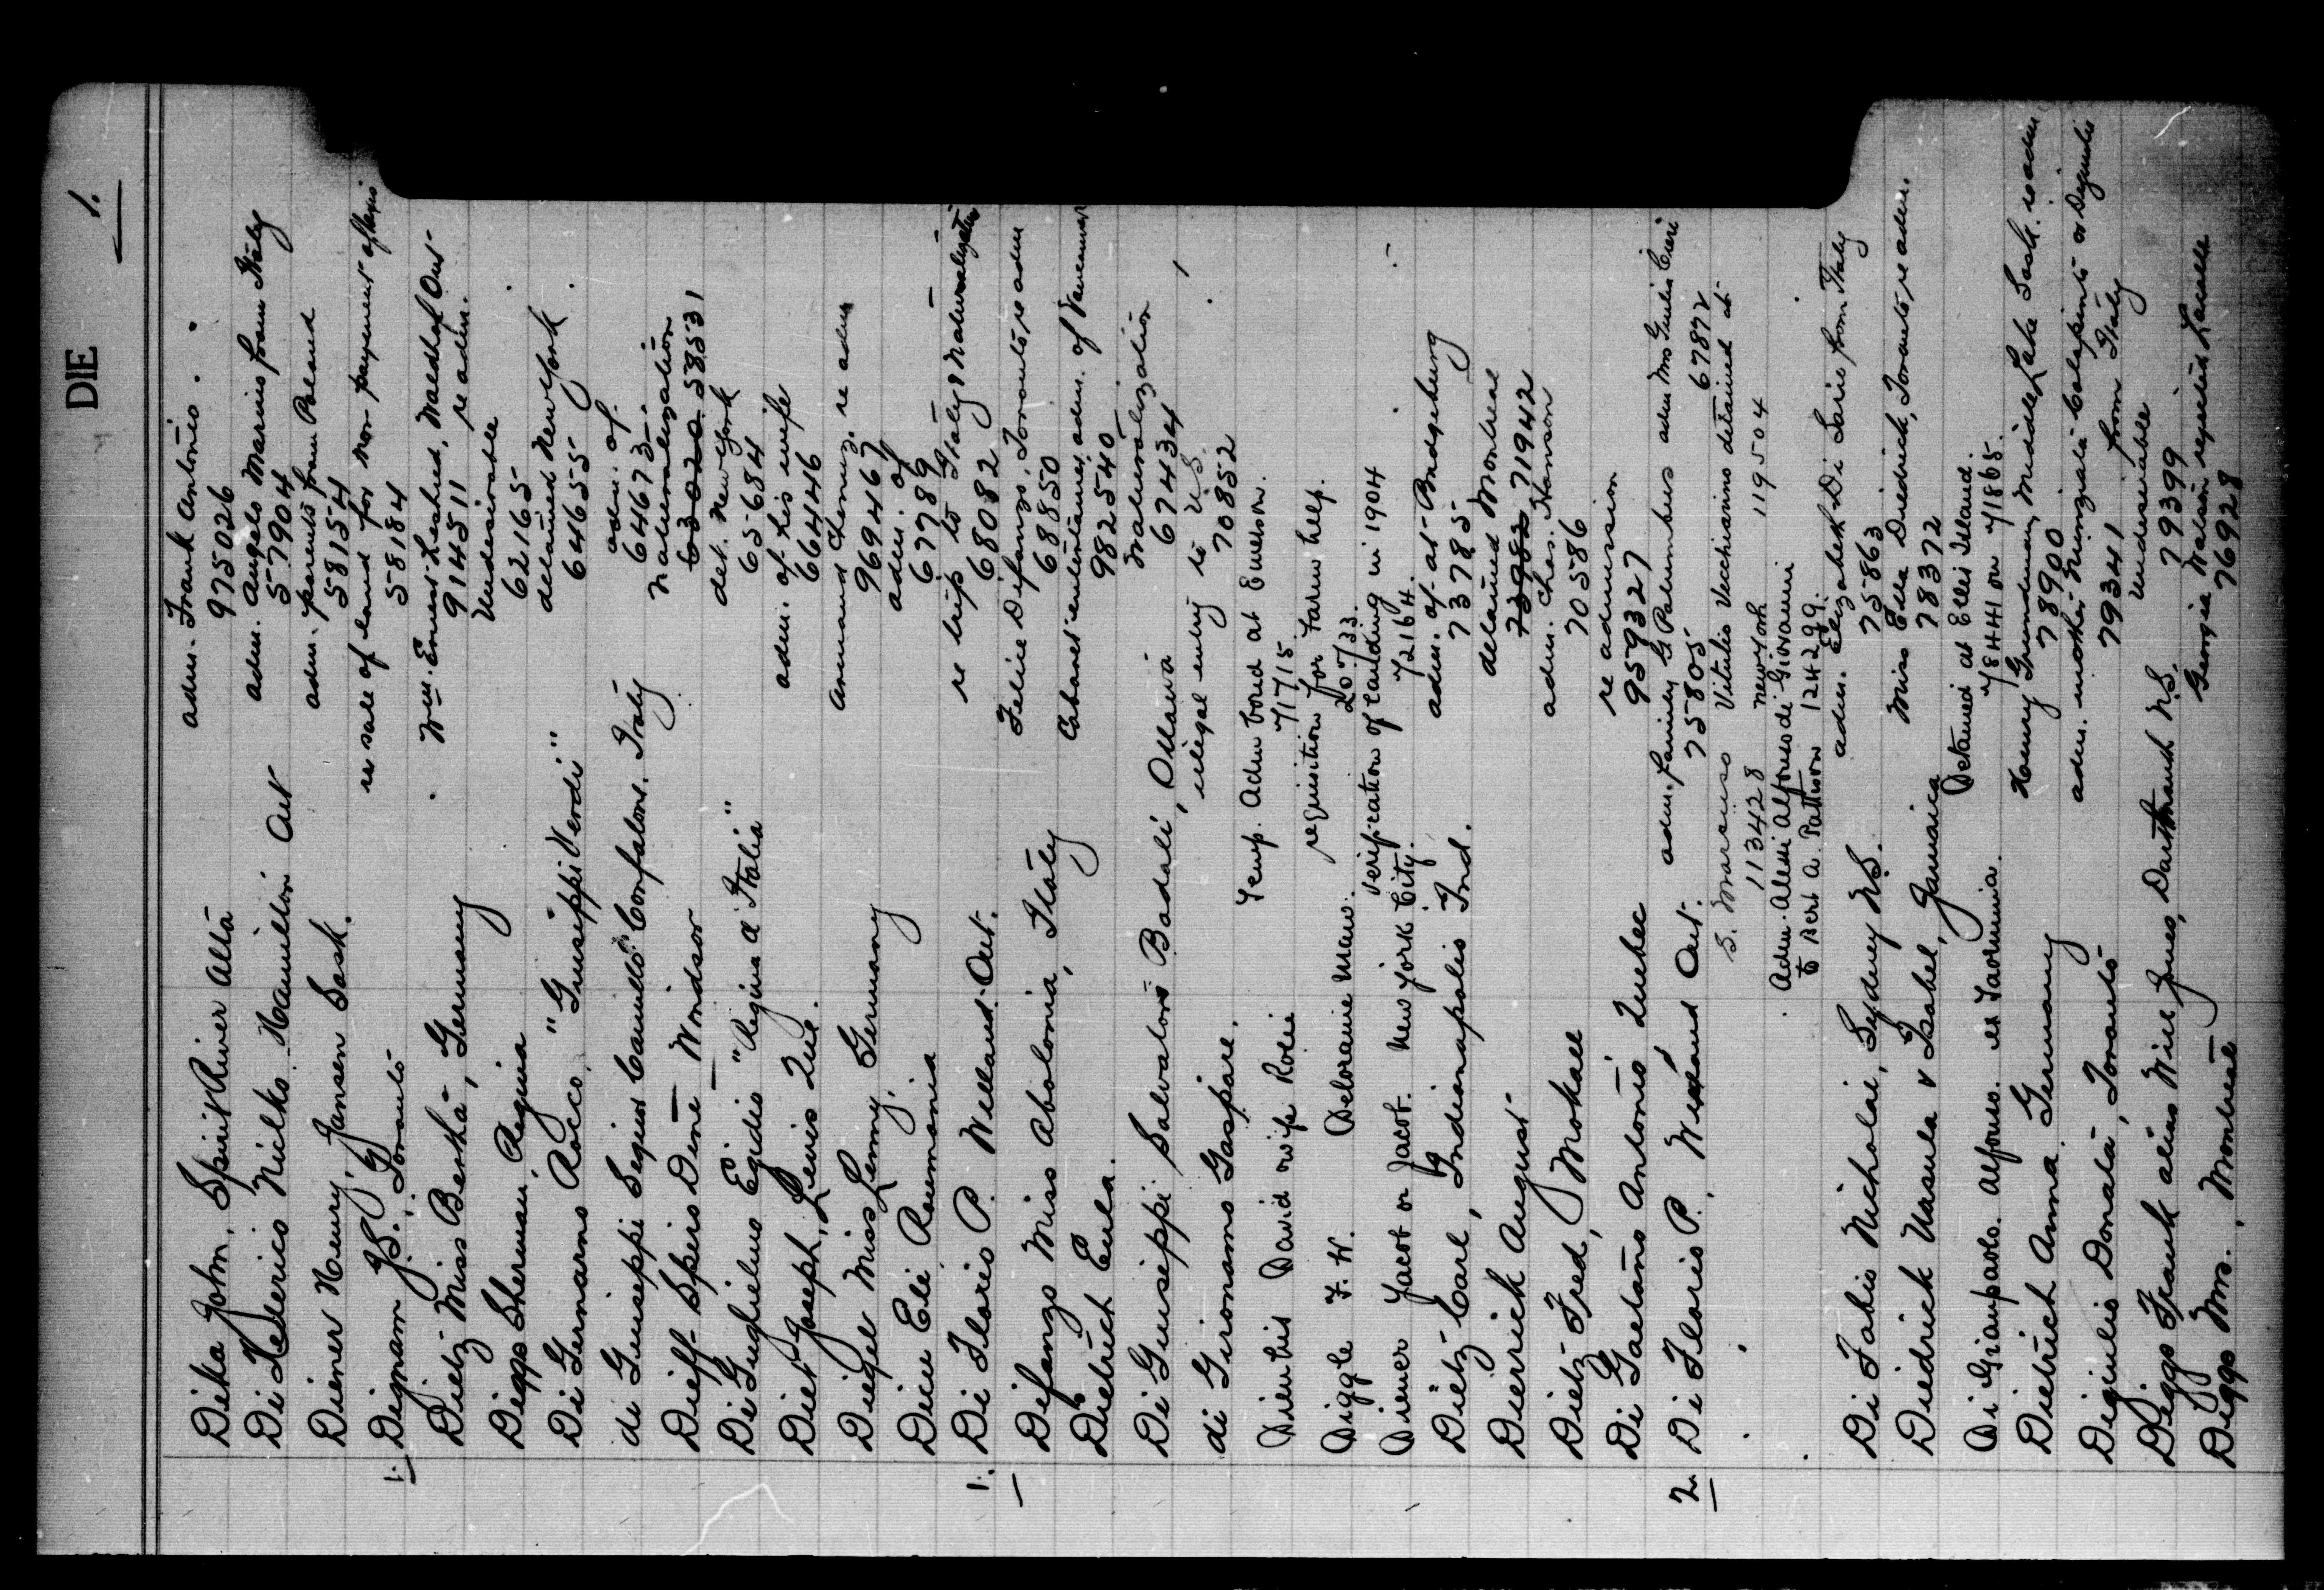 DIE 1.
Dika John, Spirit River Alta adm. Frank Antonio.
975026
Di Federico Milko Hamilton Ont adm. Angelo Marino from Italy
57904
Diener Henry, Jansen Sask. adm. parents from Poland
58154
1. Dignam J.S., Toronto re sale of land for non payment of taxes
58184
Dietz Miss Bertha, Germany Wm. Ernest Ont re adm.
914511
Diggs Sherman, Regina Undesirable
62165
Di Gennarno Rocco, "Guiseppi Verdi" detained New York.
64655
di Guiseppi Sequin Camillo Confalone, Italy adm. of
64673
Dieff Spiro Dine Windsor Naturalization
63020 58531
Di Guglielmo Egidio "Regina d'Italia" det. New York
65684
Diet Joseph, Levis Que. adm. of his wife
66446
Diegel Miss Lenny, Germany Armand re adm
969467
Dicu Eli Roumania adm. of
67789
1. Di Florio P. Welland Ont. re trip to Italy & Naturalization
68082
Difanzo Miss Abolonia, Italy Felice Difanzo, Toronto re adm
68850
Dietrich Eula. Cabaret entertainer, adm. of Vancouver
982540
Di Guiseppi Salvatore Badali, Ottawa Naturalization
67434
di Gironamo Gaspare. illegal entry to U.S.
70852
David & wife Rosie Temp. Adm bond at Emerson.
71715
Diggle F. W. Deloraine Man. requisition for Farm help.
20733
Diener Jacob or Jacot. New York City. Verification of landing in 1904
72164
Dietz Carl, Indianapolis Ind. adm. of at Bridgeburg
73785
Dierrick August detained Montreal
73982 71942
Dietz Fred, Mokall adm. Chas. Hanson
70586
Di Gaetano Antonio Quebec re admission
959327
2 Di Florio P., Welland Ont. adm. family G Palumbus adm Mrs Giulia Cieri
75805 67872
S. Marcuso Vitulio Vecchiarino detained at
1133428 New York 119504
Adm. Alessi Alfonso di Giovanni
to Bert A. Pattison 124299.
Di Fabio Nicholai, Sydney N.S. adm. Elizabeth Di Lario from Italy
75863
Diedrick Ursula & Isabel, Jamaica Miss Ella Diedrick, Toronto, re adm.
78372
Di Giampaolo Alfonso. ex Taormina. Detained at Ellis Island.
78441 on 71865.
Dietrich Anna Germany Henry Grundman, Middle Lake Sask. re adm
78900
Digiulio Donato, Toronto adm. mother Nunziata Colapinto or Digiulio
79341 from Italy
Diggs Frank alias Will Jones, Dartmouth N.S. Undesirable
79399
Diggs Mrs., Montreal Georgia Watson
76928